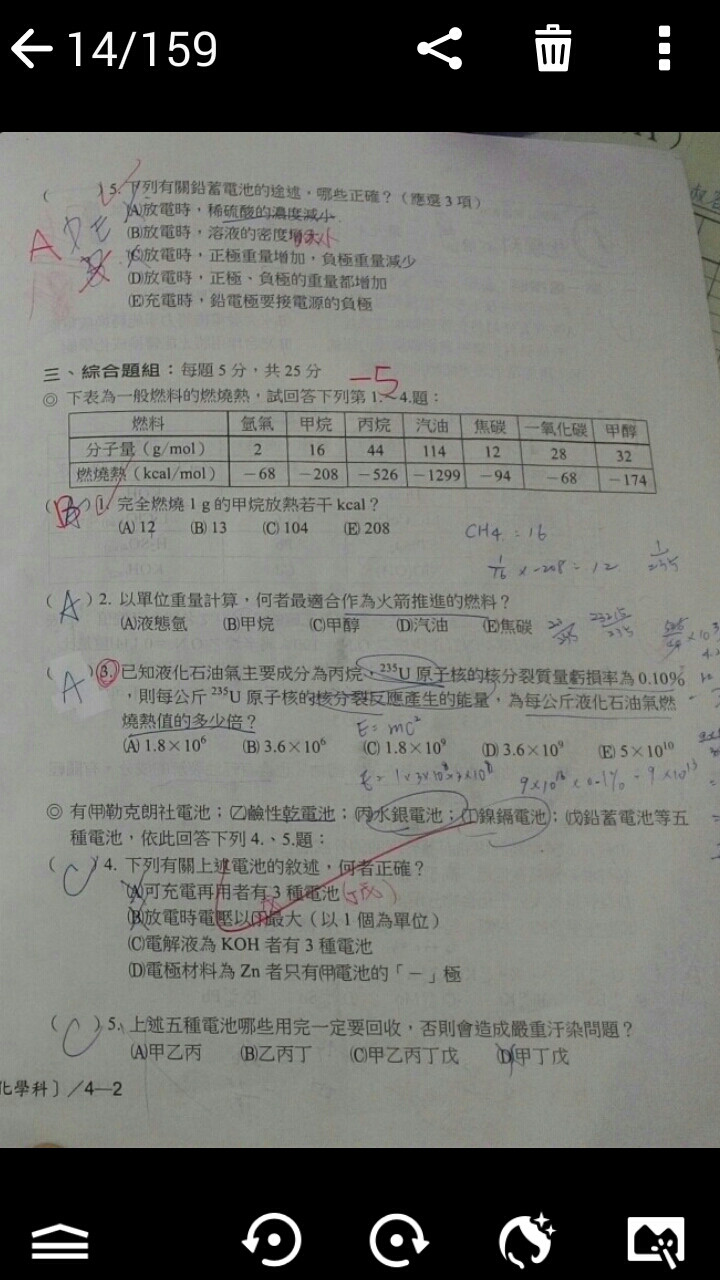 14/159
( ) 5. 下列有關鉛蓄電池的途述，哪些正確？（應選3項）
(A)放電時，稀硫酸的濃度減少
(B)放電時，溶液的密度
(C)放電時，正極重量增加，負極重量減少
(D)放電時，正極、負極的重量都增加
(E)充電時，鉛電極要接電源的負極
A D E
三、綜合題組：每題5分，共25分
-5
◎ 下表為一般燃料的燃燒熱，試回答下列第1.~4.題：
燃料 氫氣 甲烷 丙烷 汽油 焦碳 一氧化碳 甲醇
分子量（g/mol） 2 16 44 114 12 28 32
燃燒熱（kcal/mol） −68 −208 −526 −1299 −94 −68 −174
( B ) 1. 完全燃燒 1 g 的甲烷放熱若干 kcal？
(A) 12 (B) 13 (C) 104 (E) 208
CH4 = 16
1/16 x -208 = 12
1/235
( A ) 2. 以單位重量計算，何者最適合作為火箭推進的燃料？
(A)液態氫 (B)甲烷 (C)甲醇 (D)汽油 (E)焦碳
( A ) 3. 已知液化石油氣主要成分為丙烷，²³⁵U 原子核的核分裂質量虧損率為 0.10%
，則每公斤 ²³⁵U 原子核的核分裂反應產生的能量，為每公斤液化石油氣燃
燒熱值的多少倍？
E = mc²
(A) 1.8×10⁶ (B) 3.6×10⁶ (C) 1.8×10⁹ (D) 3.6×10⁹ (E) 5×10¹⁰
◎ 有(甲)勒克朗社電池；(乙)鹼性乾電池；(丙)水銀電池；(丁)鎳鎘電池；(戊)鉛蓄電池等五
種電池，依此回答下列 4.、5.題：
( C ) 4. 下列有關上述電池的敘述，何者正確？
(A)可充電再用者有 3 種電池
(B)放電時電壓以(丁)最大（以 1 個為單位）
(C)電解液為 KOH 者有 3 種電池
(D)電極材料為 Zn 者只有(甲)電池的「－」極
( C ) 5. 上述五種電池哪些用完一定要回收，否則會造成嚴重汙染問題？
(A)甲乙丙 (B)乙丙丁 (C)甲乙丙丁戊 (D)甲丁戊
化學科〕／4—2